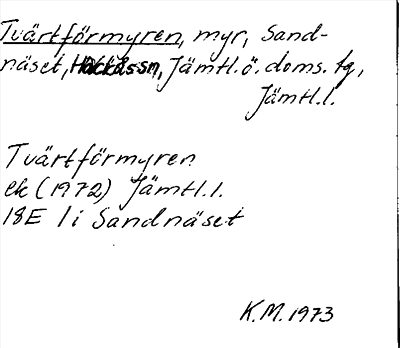 Tvärtförmyren, myr, Sand-
näset, Jämtl.ö.doms.tg,
Jämtl.l.
Tvärtförmyren
ek (1972) Jämtl.l.
18E 1 i Sandnäset
K.M. 1973